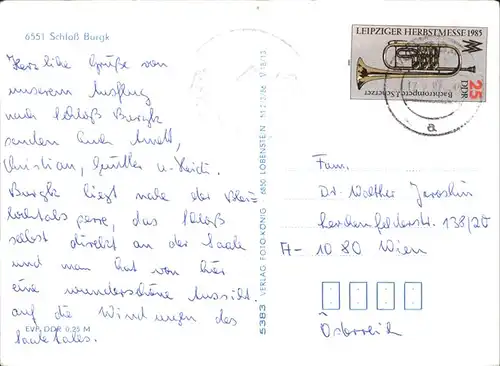 6551 Schloß Burgk
Herzliche Grüße von
unserem Ausflug
nach Schloß Burgk
senden Euch Anett,
Christian, Günther u. Heidi.
Burgk liegt nahe der Blei=
lochtalsperre, das Schloß
selbst direkt an der Saale
und man hat von hier
eine wunderschöne Aussicht
auf die Windungen des
Saaletales.
EVP DDR 0,25 M
5383 VERLAG FOTO-KÖNIG 6850 LOBENSTEIN
V 18/13
LEIPZIGER HERBSTMESSE 1985
Bachtrompete J. Scherzer
DDR
25
a
Fam.
Dr. Walther
Lerchenfelderstr. 138/20
A- 1080 Wien
Österreich